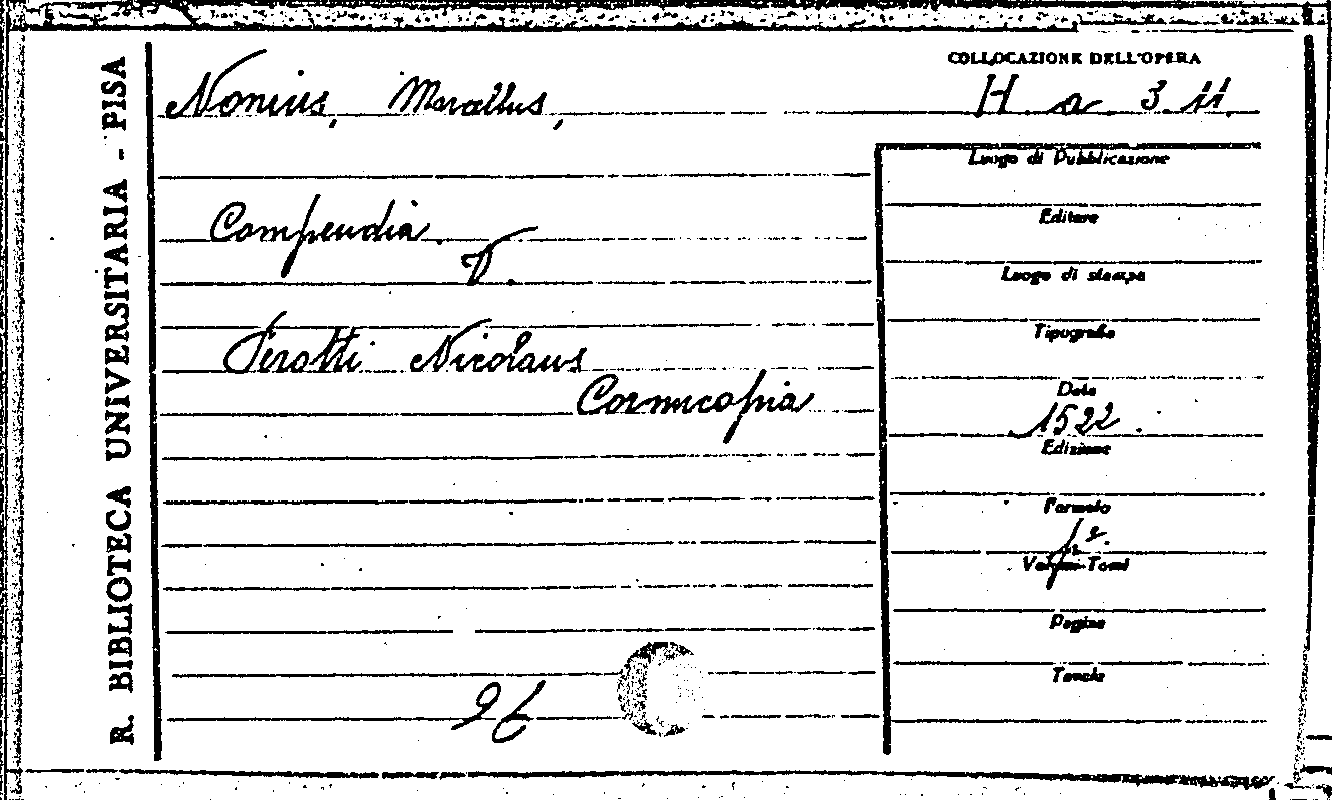 R. BIBLIOTECA UNIVERSITARIA - PISA
Nonius, Marcellus,
COLLOCAZIONE DELL'OPERA
H a 3 11
Luogo di Pubblicazione
Compendia.
Editore
V.
Luogo di stampa
Tipografia
Perotti Nicolaus
Cornucopia
Data
1522.
Edizione
Formato
f.º
Volumi-Tomi
Pagine
Tavole
26